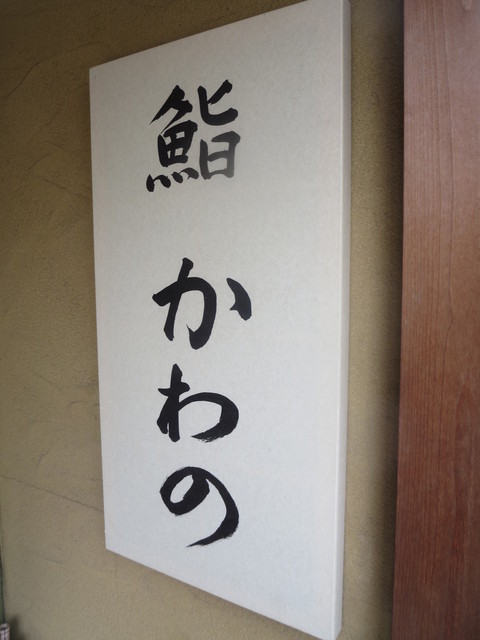 鮨 かわの